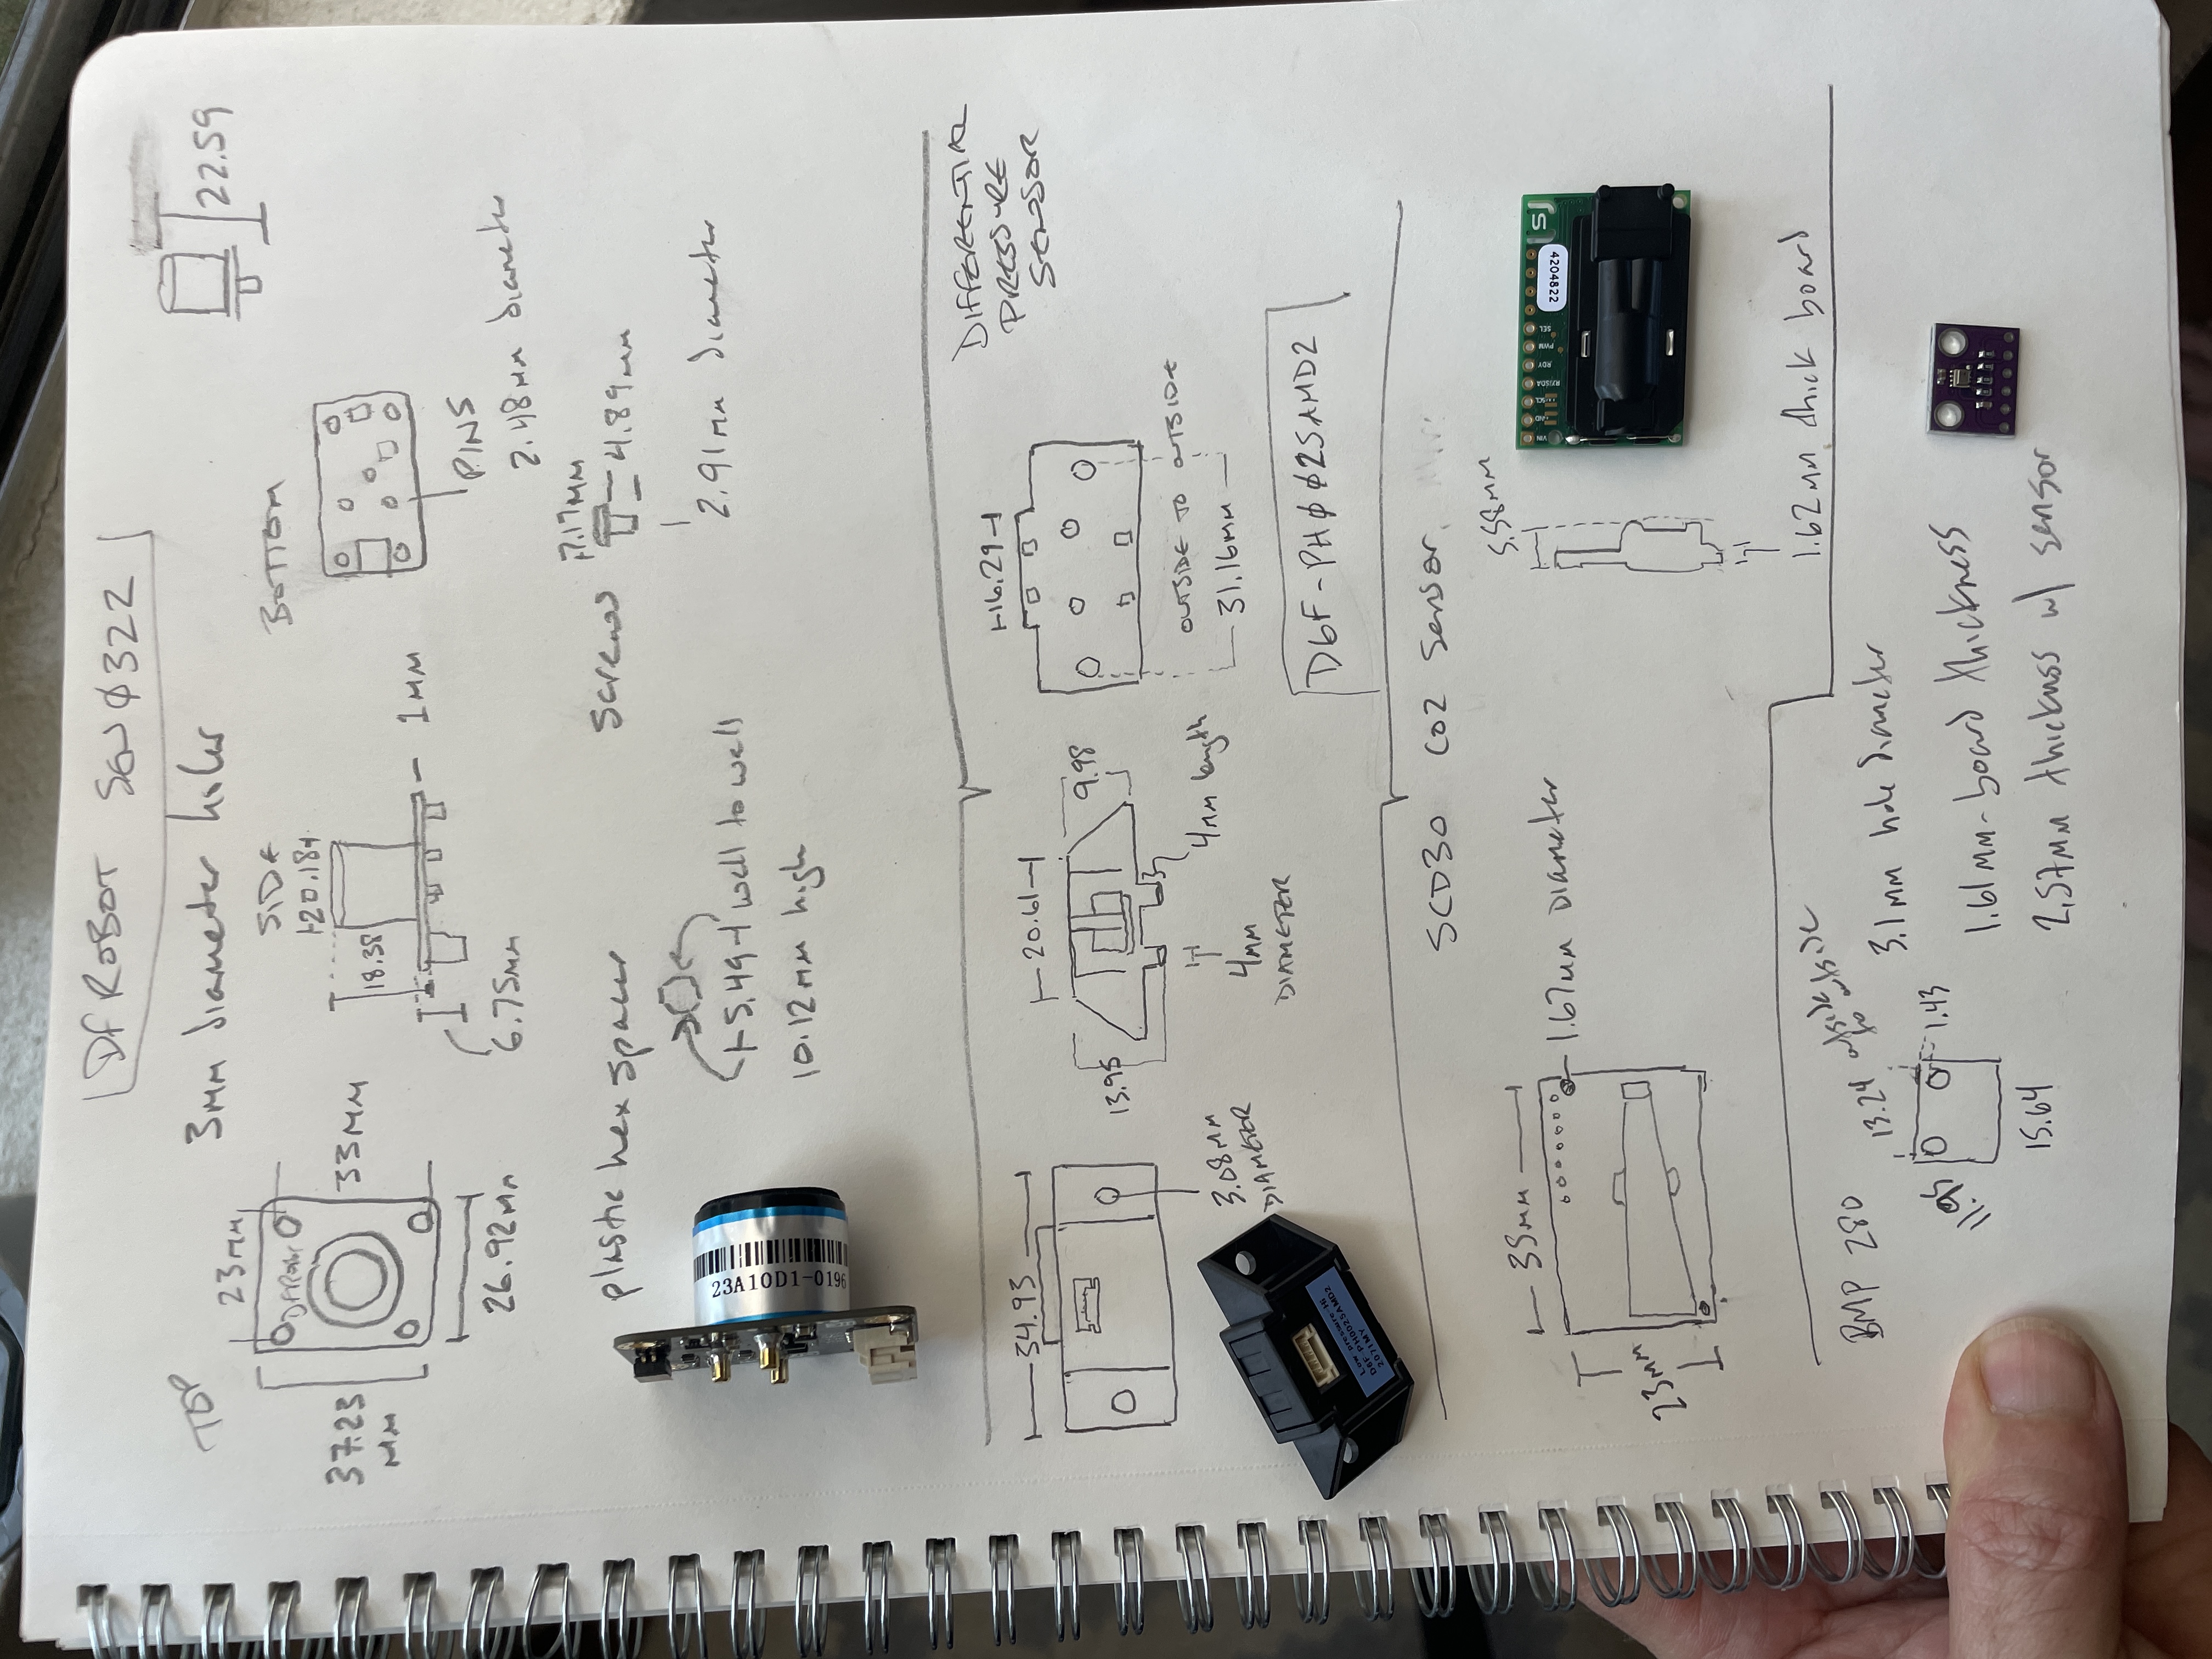 DFROBOT SENØ322
TOP
3mm diameter holes
22.59
23mm
DFRobot
37.23
mm
33mm
26.92mm
SIDE
20.18
18.38
1mm
6.75mm
BOTTOM
PINS
2.48mm diameter
plastic hex spacer
5.49 wall to wall
10.12mm high
screws
7.17mm
4.89mm
2.91mm diameter
23A10D1-0196
DIFFERENTIAL
PRESSURE
SENSOR
34.93
3.08mm
DIAMETER
20.61
13.95
9.98
4mm length
4mm
DIAMETER
16.29
OUTSIDE TO OUTSIDE
31.16mm
D6F-PHØØ25AMD2
Low pressure-Hi
D6F-PH0025AMD2
2071MY
SCD30 CO2 Sensor
35mm
1.67mm Diameter
23mm
5.58mm
1.62mm thick board
VIN
GND
SCL
RX/SDA
RDY
PWM
SEL
4204822
SJ
BMP 280
13.24 outside
to outside
11.95
1.43
15.64
3.1mm hole diameter
1.61mm-board thickness
2.57mm thickness w/ sensor